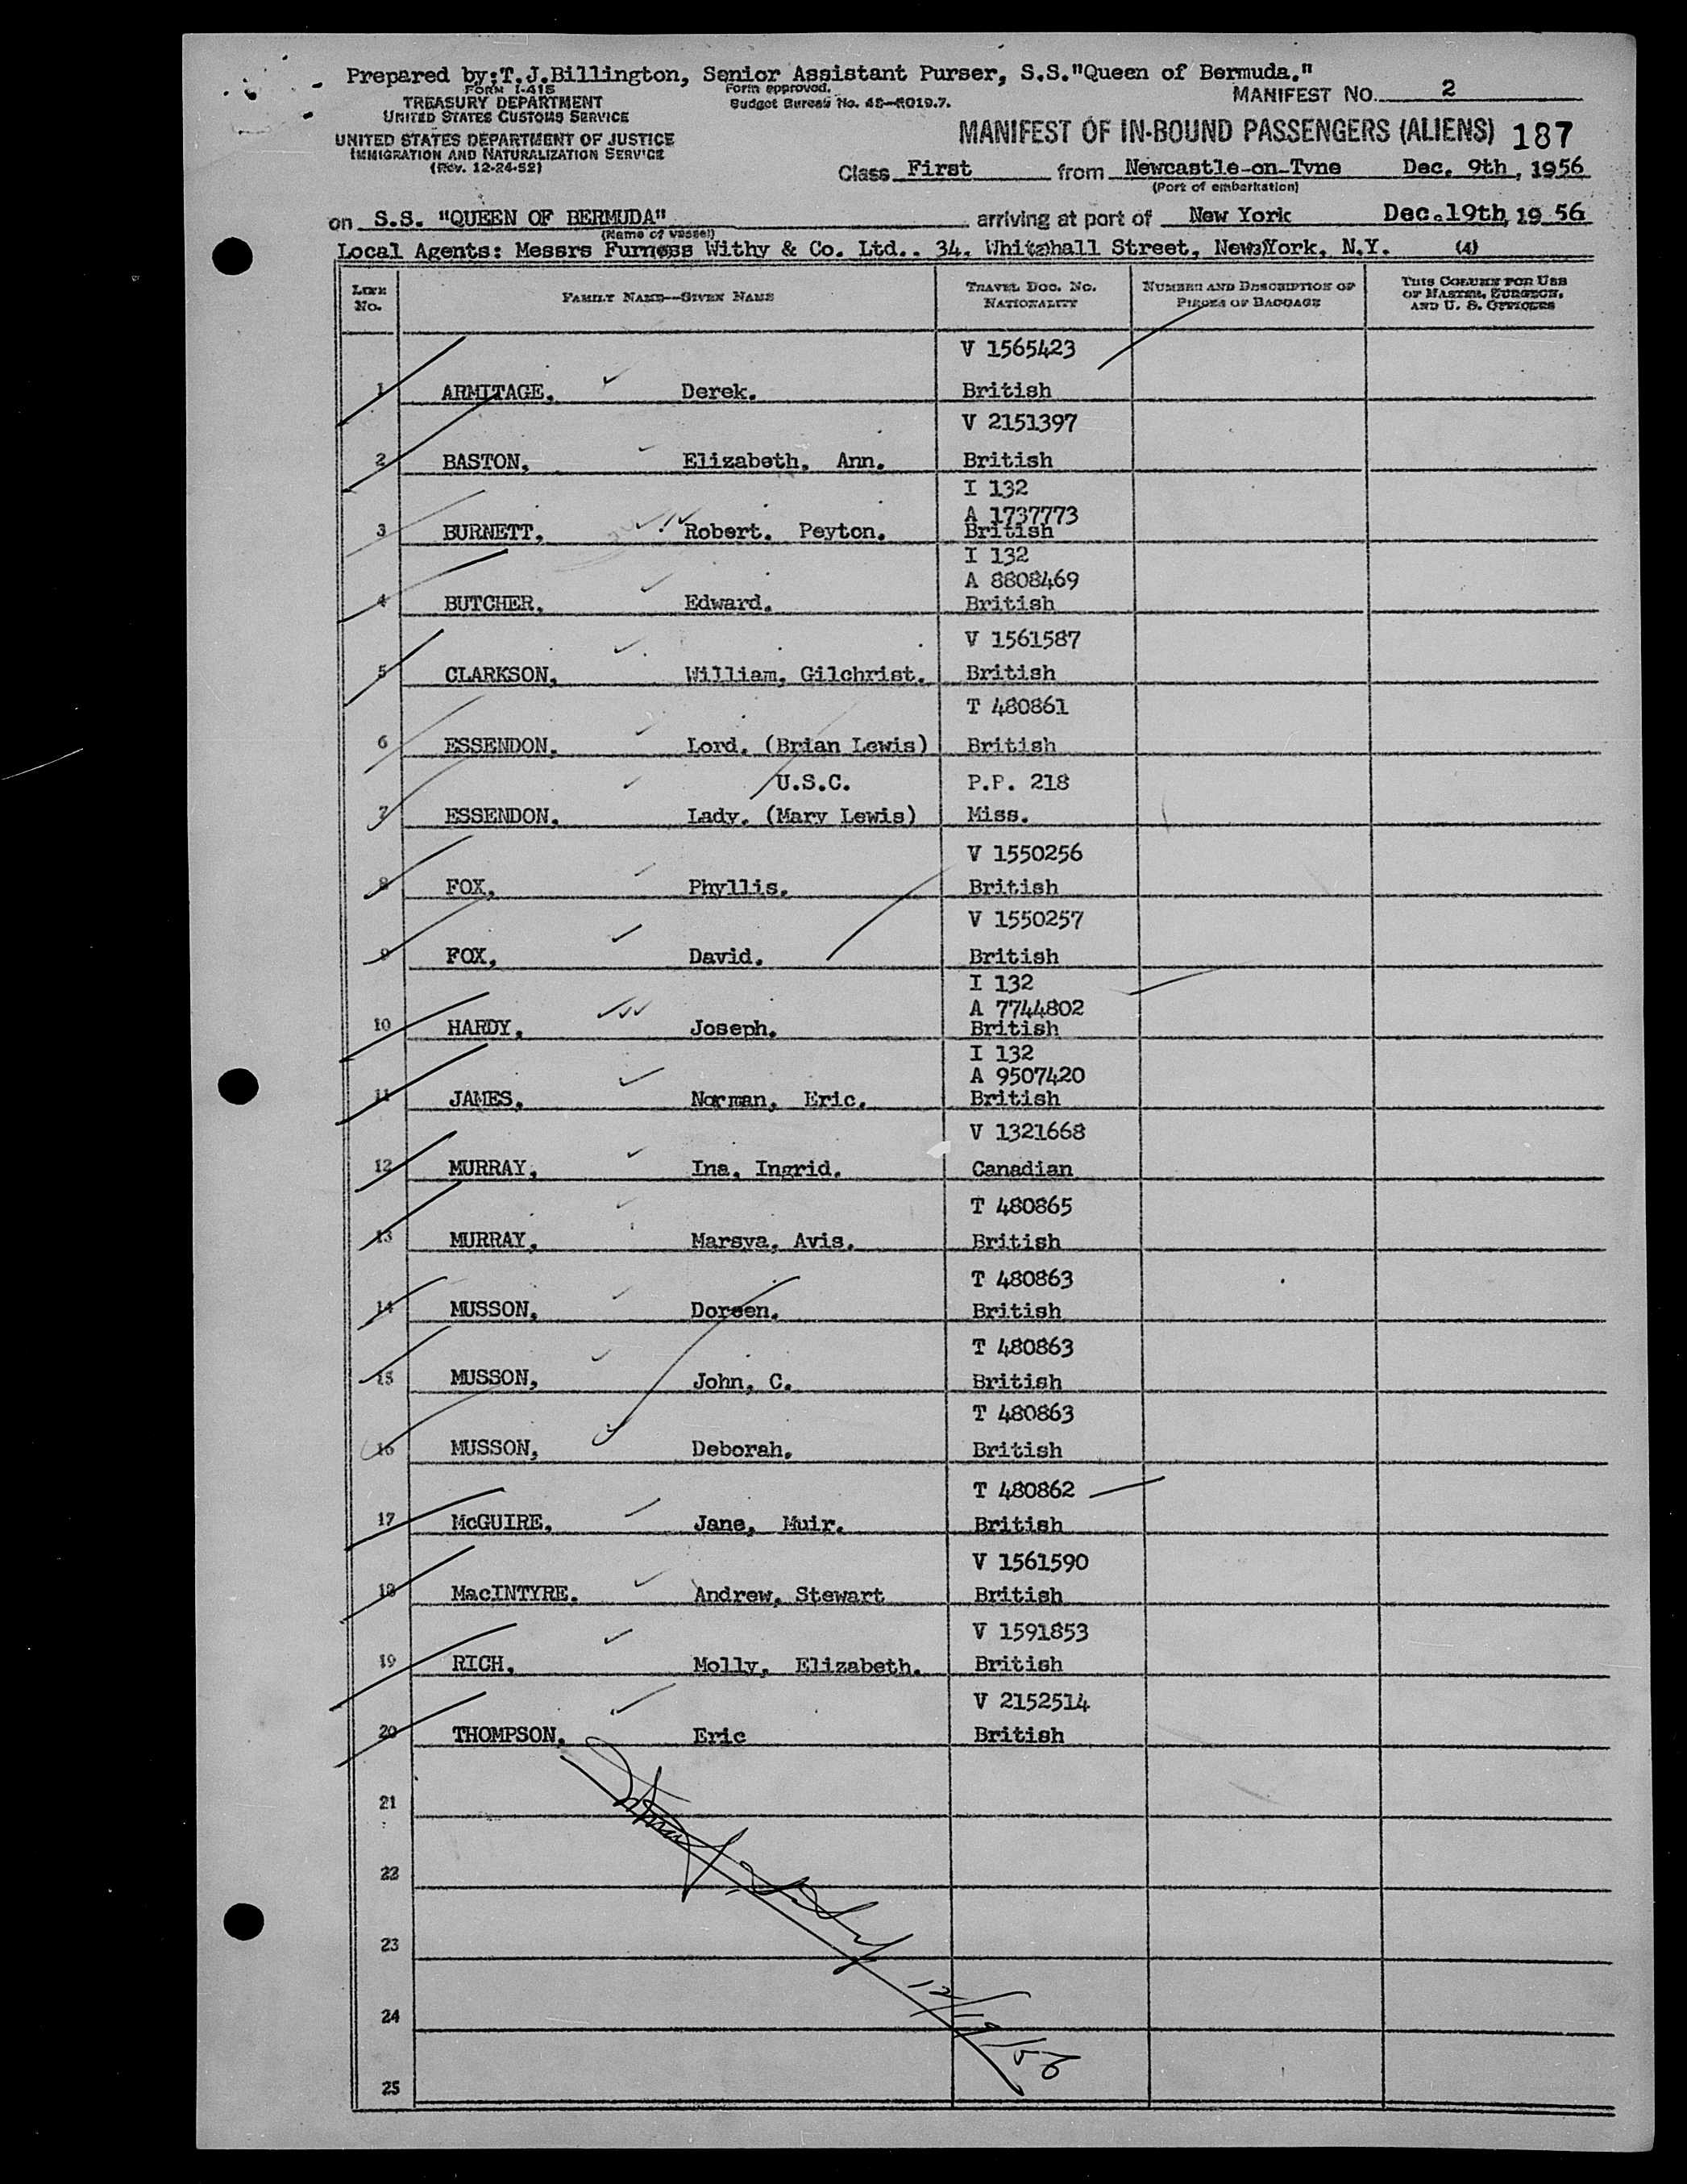 Prepared by:T.J.Billington, Senior Assistant Purser, S.S."Queen of Bermuda."
FORM I-415
TREASURY DEPARTMENT
UNITED STATES CUSTOMS SERVICE
UNITED STATES DEPARTMENT OF JUSTICE
IMMIGRATION AND NATURALIZATION SERVICE
(Rev. 12-24-52)
Form approved.
Budget Bureau No. 43-R019.7.
MANIFEST NO. 2
MANIFEST OF IN-BOUND PASSENGERS (ALIENS) 187
Class First from Newcastle-on-Tyne Dec. 9th, 1956
(Port of embarkation)
on S.S. "QUEEN OF BERMUDA" arriving at port of New York Dec.19th, 19 56
(Name of vessel)
Local Agents: Messrs Furness Withy & Co. Ltd.. 34, Whitehall Street, New York, N.Y. (4)
LINE No.
FAMILY NAME—GIVEN NAME
TRAVEL DOC. NO. NATIONALITY
NUMBER AND DESCRIPTION OF PIECES OF BAGGAGE
THIS COLUMN FOR USE OF MASTER, SURGEON, AND U. S. OFFICERS
V 1565423
1 ARMITAGE, Derek. British
V 2151397
2 BASTON, Elizabeth, Ann. British
I 132
A 1737773
3 BURNETT, Robert. Peyton. British
I 132
A 8808469
4 BUTCHER, Edward. British
V 1561587
5 CLARKSON, William, Gilchrist. British
T 480861
6 ESSENDON, Lord. (Brian Lewis) British
U.S.C. P.P. 218
7 ESSENDON. Lady. (Mary Lewis) Miss.
V 1550256
8 FOX, Phyllis. British
V 1550257
9 FOX, David. British
I 132
A 7744802
10 HARDY, Joseph. British
I 132
A 9507420
11 JAMES, Norman, Eric. British
V 1321668
12 MURRAY, Ina, Ingrid. Canadian
T 480865
13 MURRAY, Marsya, Avis. British
T 480863
14 MUSSON, Doreen. British
T 480863
15 MUSSON, John, C. British
T 480863
16 MUSSON, Deborah. British
T 480862
17 McGUIRE, Jane, Muir. British
V 1561590
18 MacINTYRE. Andrew, Stewart British
V 1591853
19 RICH, Molly, Elizabeth. British
V 2152514
20 THOMPSON. Eric British
21
22
23
24
12/19/56
25